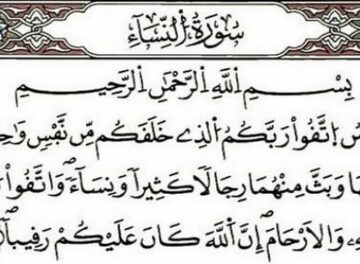 سُورَةُ النِّسَآءِ
بِسْمِ اِللَّهِ اِلرَّحْمَٰنِ اِلرَّحِيمِ
سُ اِتَّقُوا رَبَّكُمُ الذِے خَلَقَكُم مِّن نَّفْسٍ وَاحِ
ا وَبَثَّ مِنْهُمَا رِجَالاً كَثِيراً وَنِسَآءً وَاتَّقُوا
وَالاَرْحَامَ إِنَّ اللَّهَ كَانَ عَلَيْكُمْ رَقِيباً